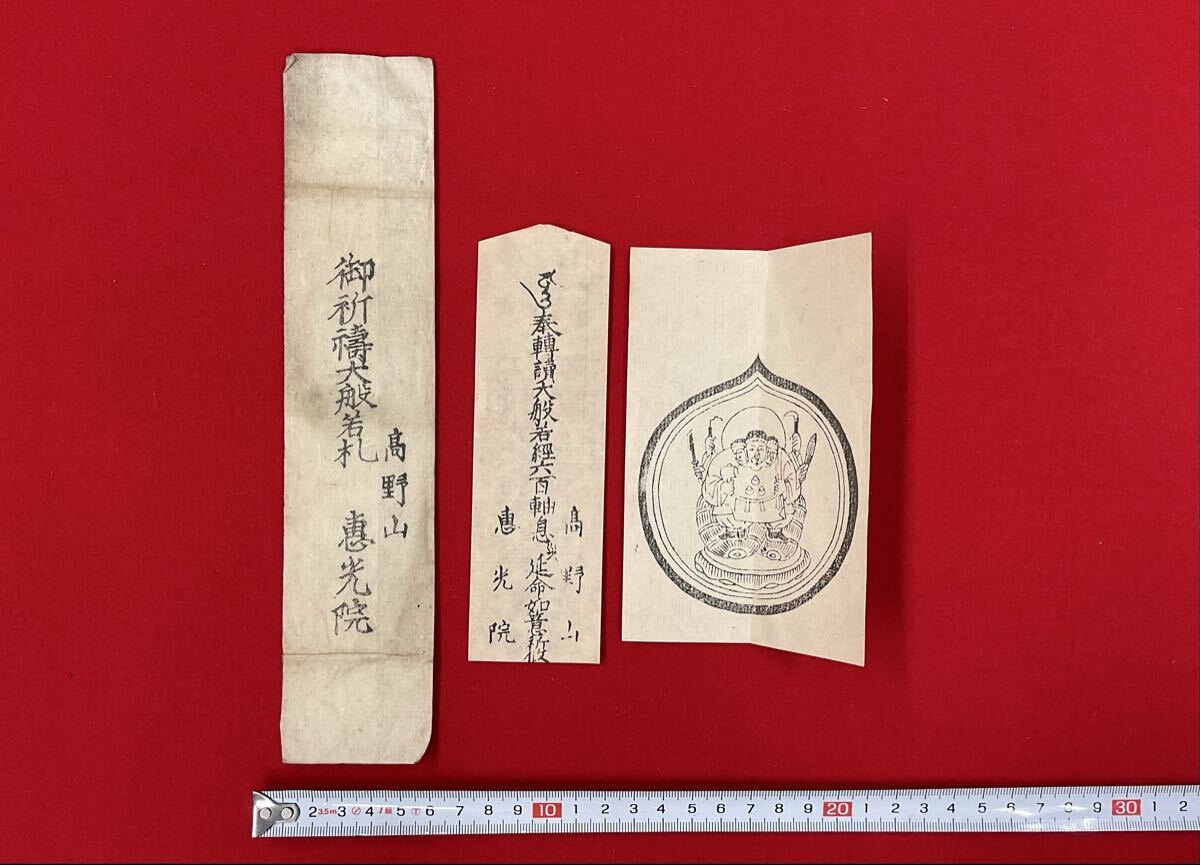 御祈禱大般若札
高野山
惠光院
奉轉讀大般若經六百軸息災延命如意祈攸
高野山
惠光院
2 3.5m 3 4 1級 5 6 7 8 9 10 1 2 3 4 5 6 7 8 9 20 1 2 3 4 5 6 7 8 9 30 1 2